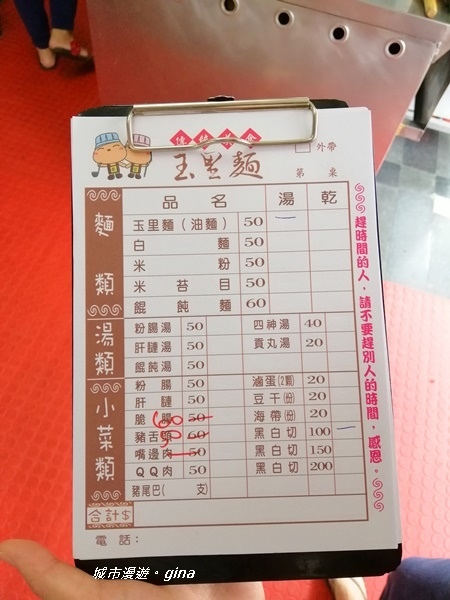 傳統美食
玉里麵
外帶
第 桌
品名 湯 乾
麵類
玉里麵(油麵) 50 一
白麵 50
米粉 50
米苔目 50
餛飩麵 60
湯類
粉腸湯 50 四神湯 40
肝腱湯 50 貢丸湯 20
餛飩湯 50
小菜類
粉腸 50 滷蛋(2顆) 20
肝腱 50 豆干(份) 20
脆腸 50 60 海帶(份) 20
豬舌頭 60 50 黑白切 100 一
嘴邊肉 50 黑白切 150
QQ肉 50 黑白切 200
豬尾巴( 支)
合計$
電話:
趕時間的人,請不要趕別人的時間,感恩。
城市漫遊。gina